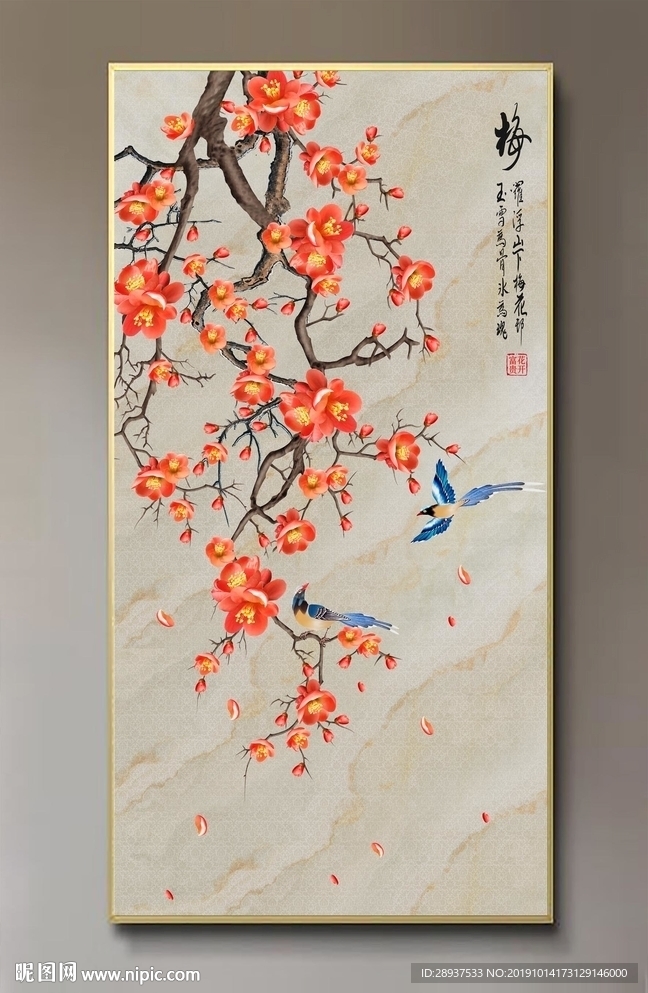 梅
羅浮山下梅花邨
玉雪為骨冰為魂
花开
富贵
昵图网 www.nipic.com
ID:28937533 NO:20191014173129146000